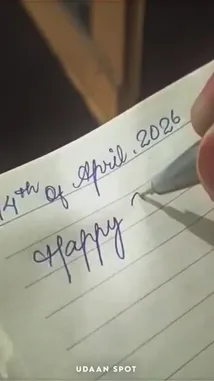 14th of April, 2026
Happy
UDAAN SPOT